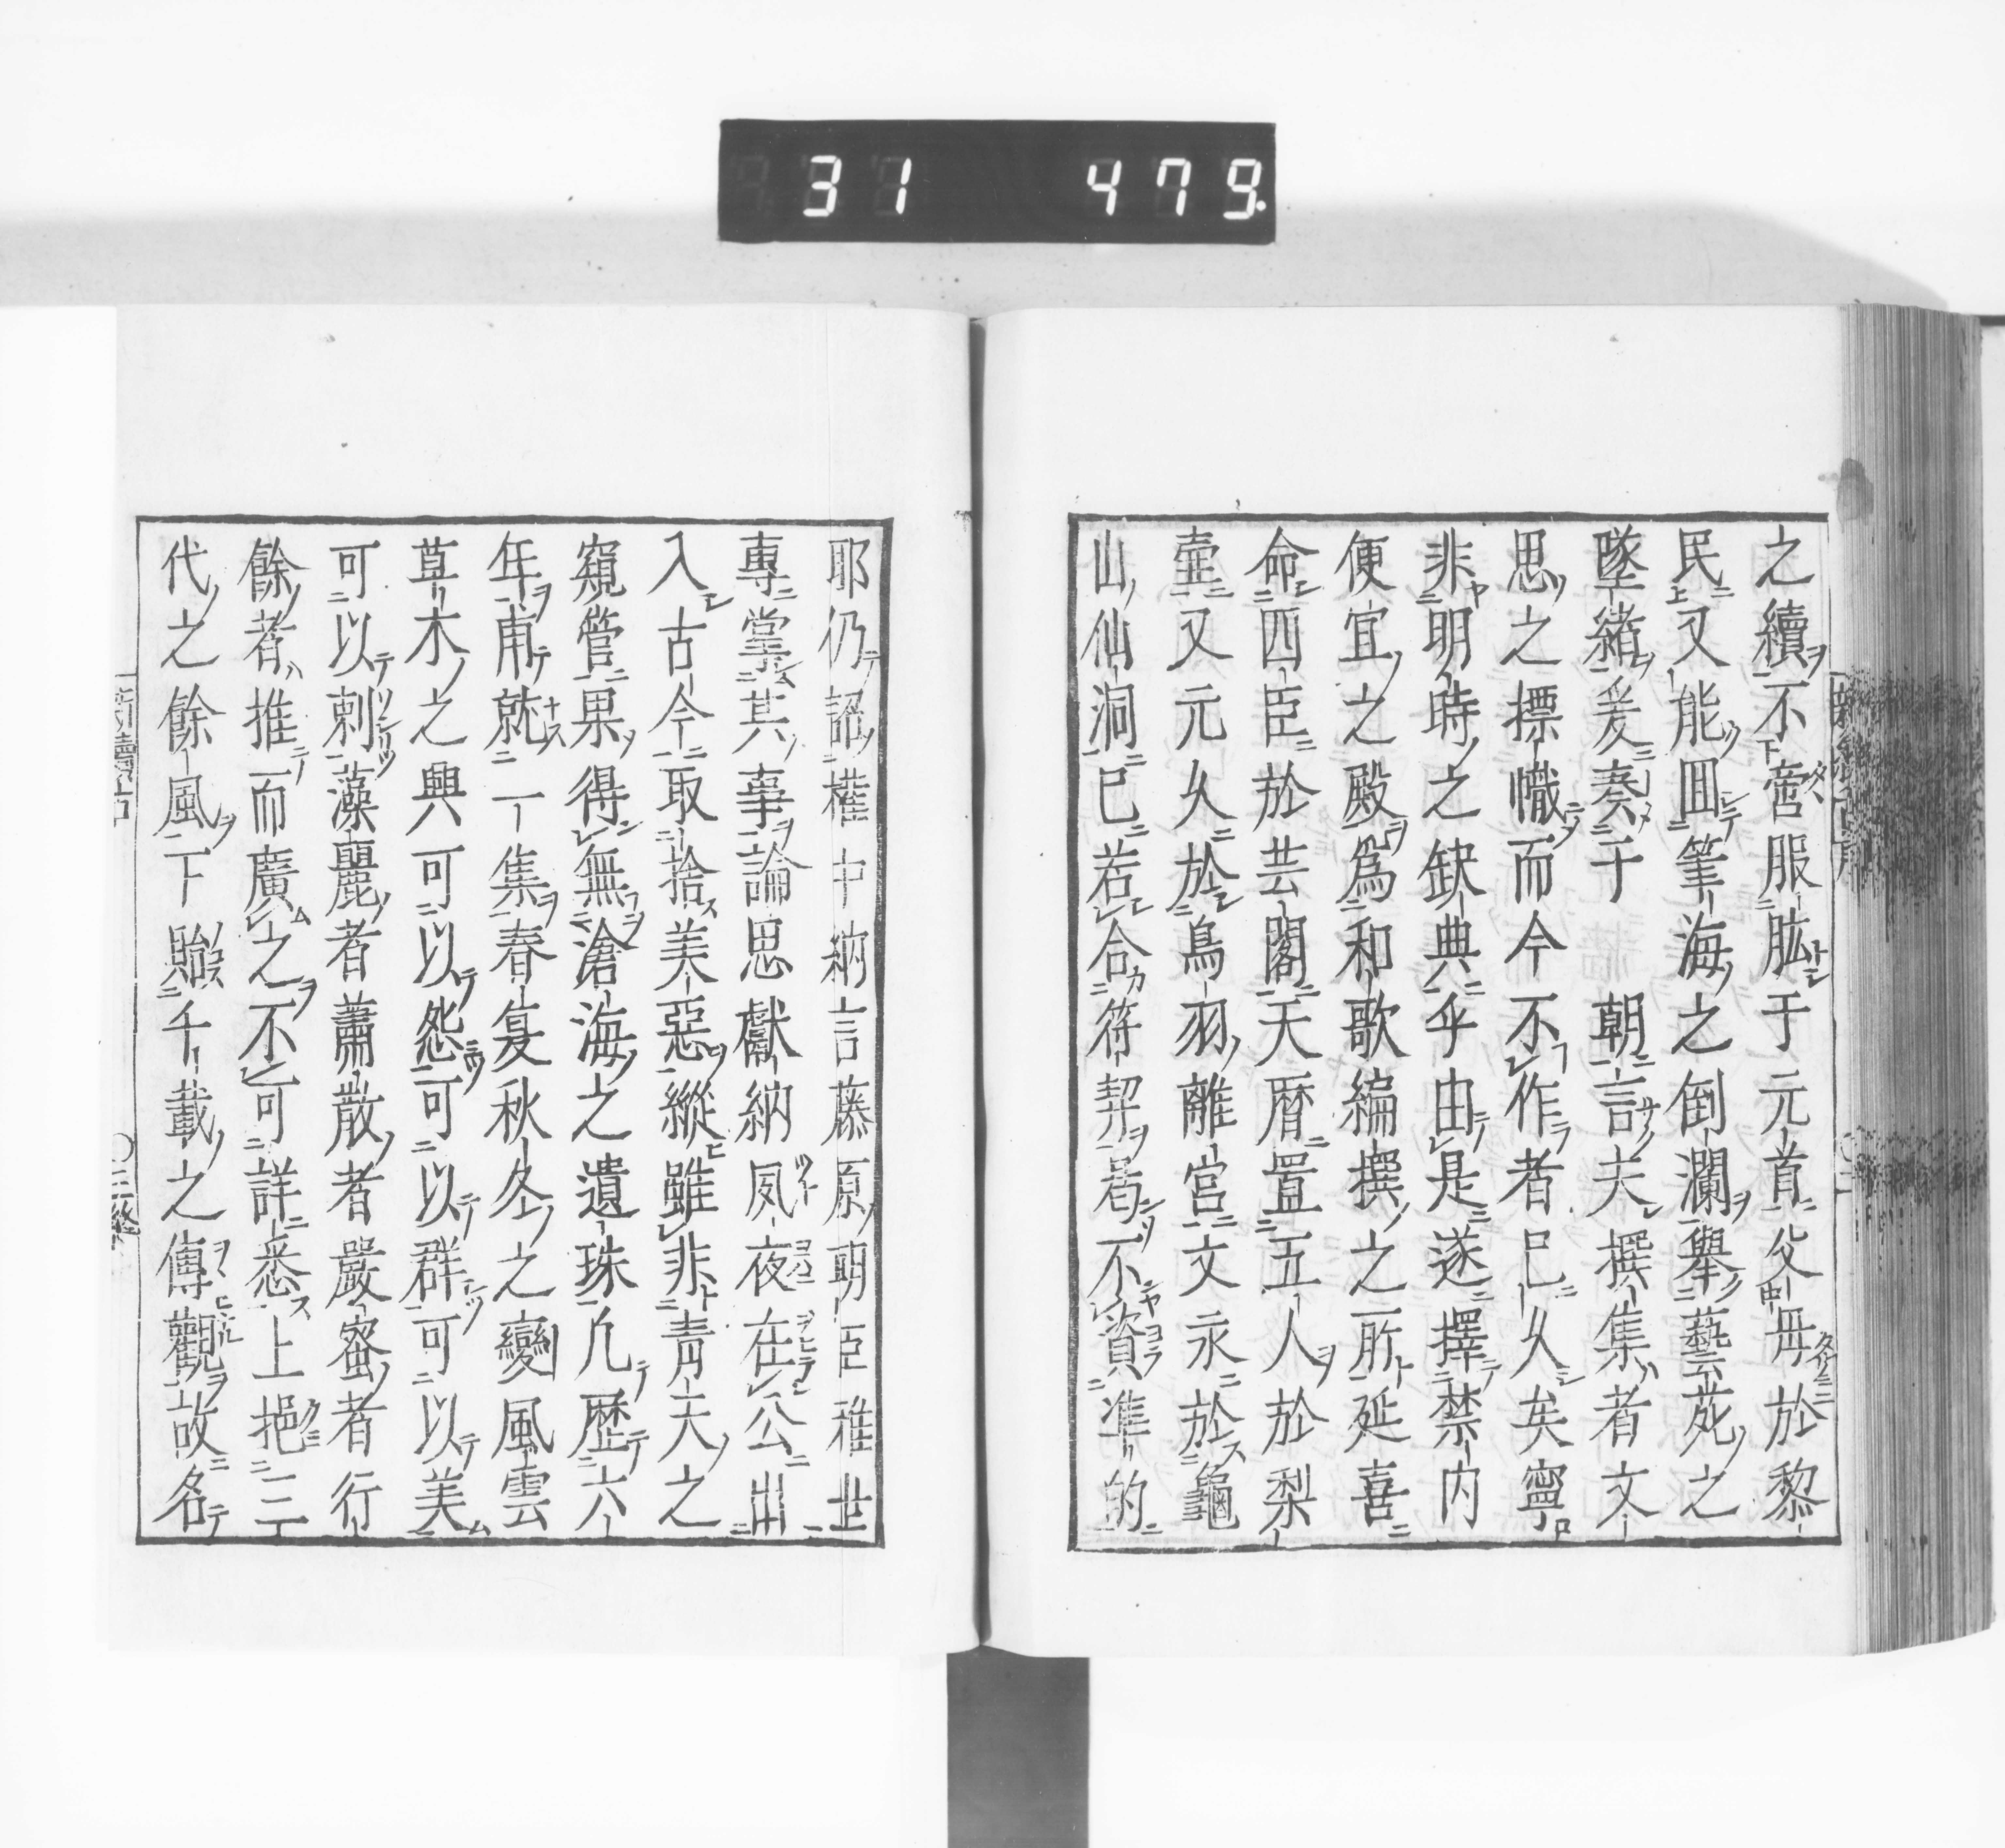 31 479.
之續不啻服肱于元首父毋於黎
民又能囬筆海之倒瀾舉藝苑之
墜緒爰奏于 朝言夫撰集者文
思之摽幟而今不作者已久矣寧
非明時之缺典乎由是遂擇禁内
便宜之殿爲和歌編撰之所延喜
命四臣於芸閣天曆置五人於梨
壷又元久於鳥羽離宮文永於龜
山仙洞已若合符契焉不資準的
耶仍詔權中納言藤原朝臣雅世
專掌其事論思獻納夙夜在公出
入古今取捨美惡縱雖非青天之
窺管果得無滄海之遺珠凢歷六
年甫就一集春夏秋冬之變風雲
草木之興可以怨可以群可以美
可以刺藻麗者蕭散者嚴密者行
餘者推而廣之不可詳悉上挹三
代之餘風下貽千載之傳觀故各